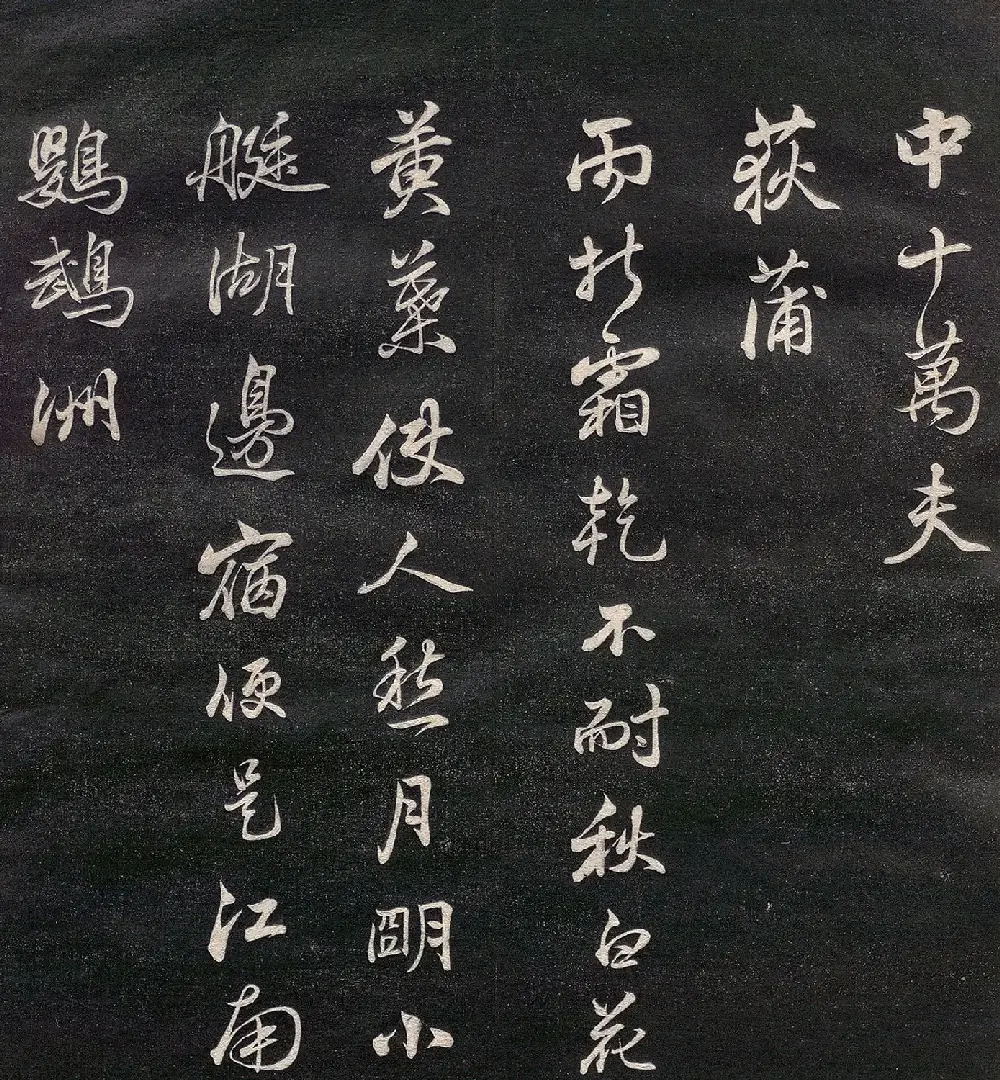 中十萬夫
荻蒲
雨折霜乾不耐秋白花
黄葉使人愁月明小
艇湖邊宿便是江南
鸚鵡洲